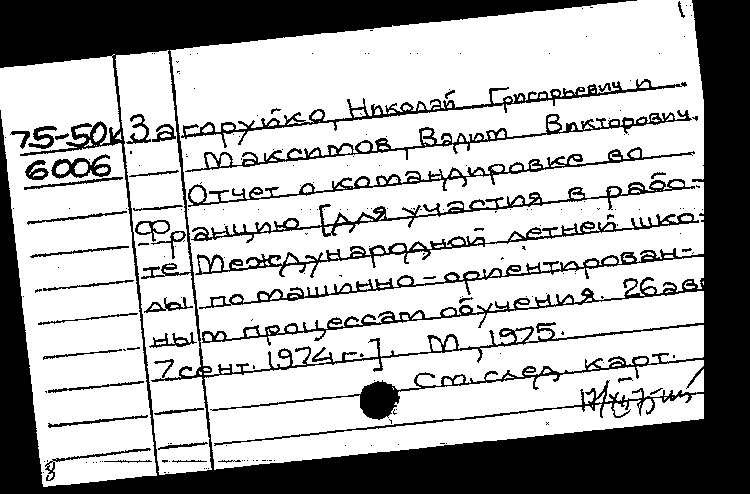 1
75-50к Загоруйко, Николай Григорьевич и
6006 Максимов, Вадим Викторович.
Отчет о командировке во
Францию [для участия в рабо-
те Международной летней шко-
лы по машинно-ориентирован-
ным процессам обучения. 26 авг
7 сент. 1974 г.]. М, 1975.
См. след. карт.
8